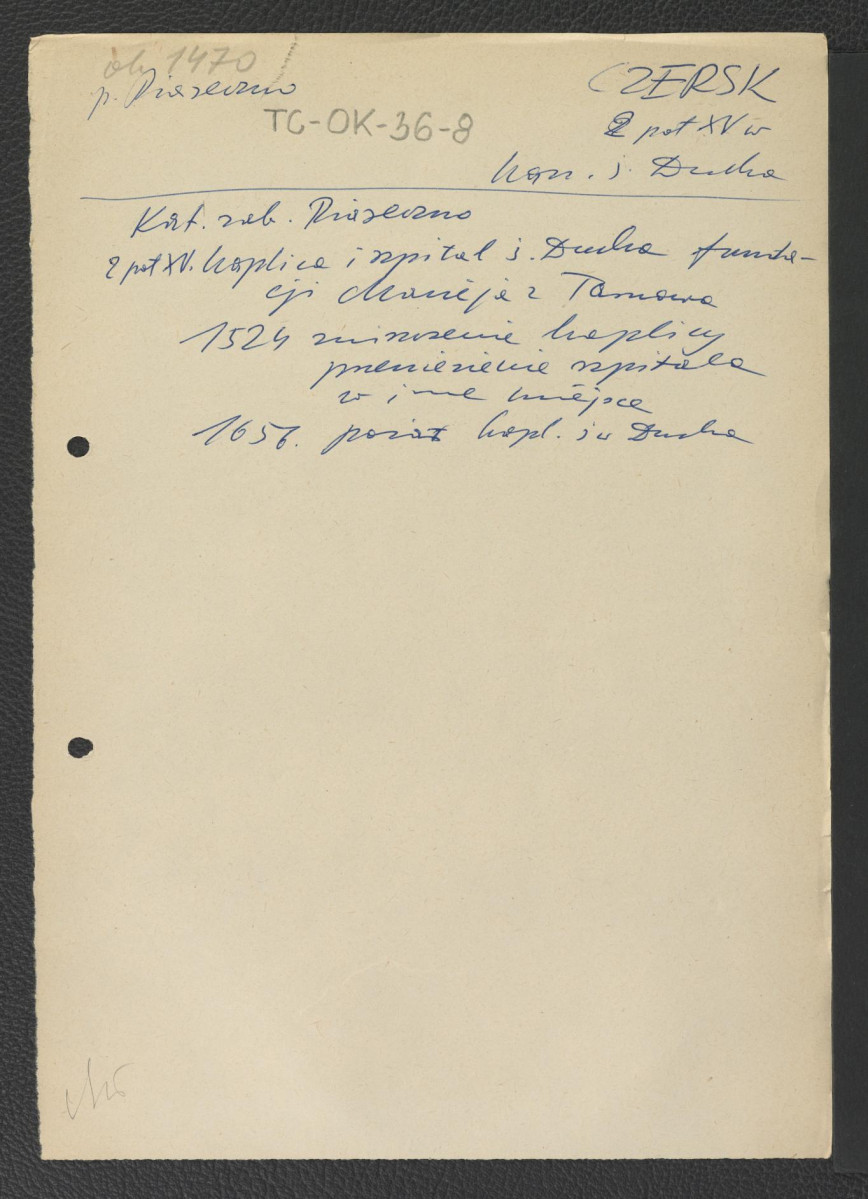 ok 1470
p. Piaseczno
CZERSK
TC-OK-36-8
2 poł XV w
kap. ś. Ducha
Kat. zab. Piaseczno
2 poł XV. kaplica i szpital ś. Ducha funda-
cji Macieja z Tarnowa
1524 zniszczenie kaplicy
przeniesienie szpitala
w inne miejsce
1656. pożar kapl. św Ducha